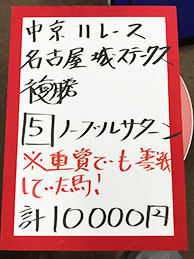 中京11レース
名古屋城ステークス
複勝
5 ノーブルサターン
※重賞でも善戦
していた馬!
計10000円